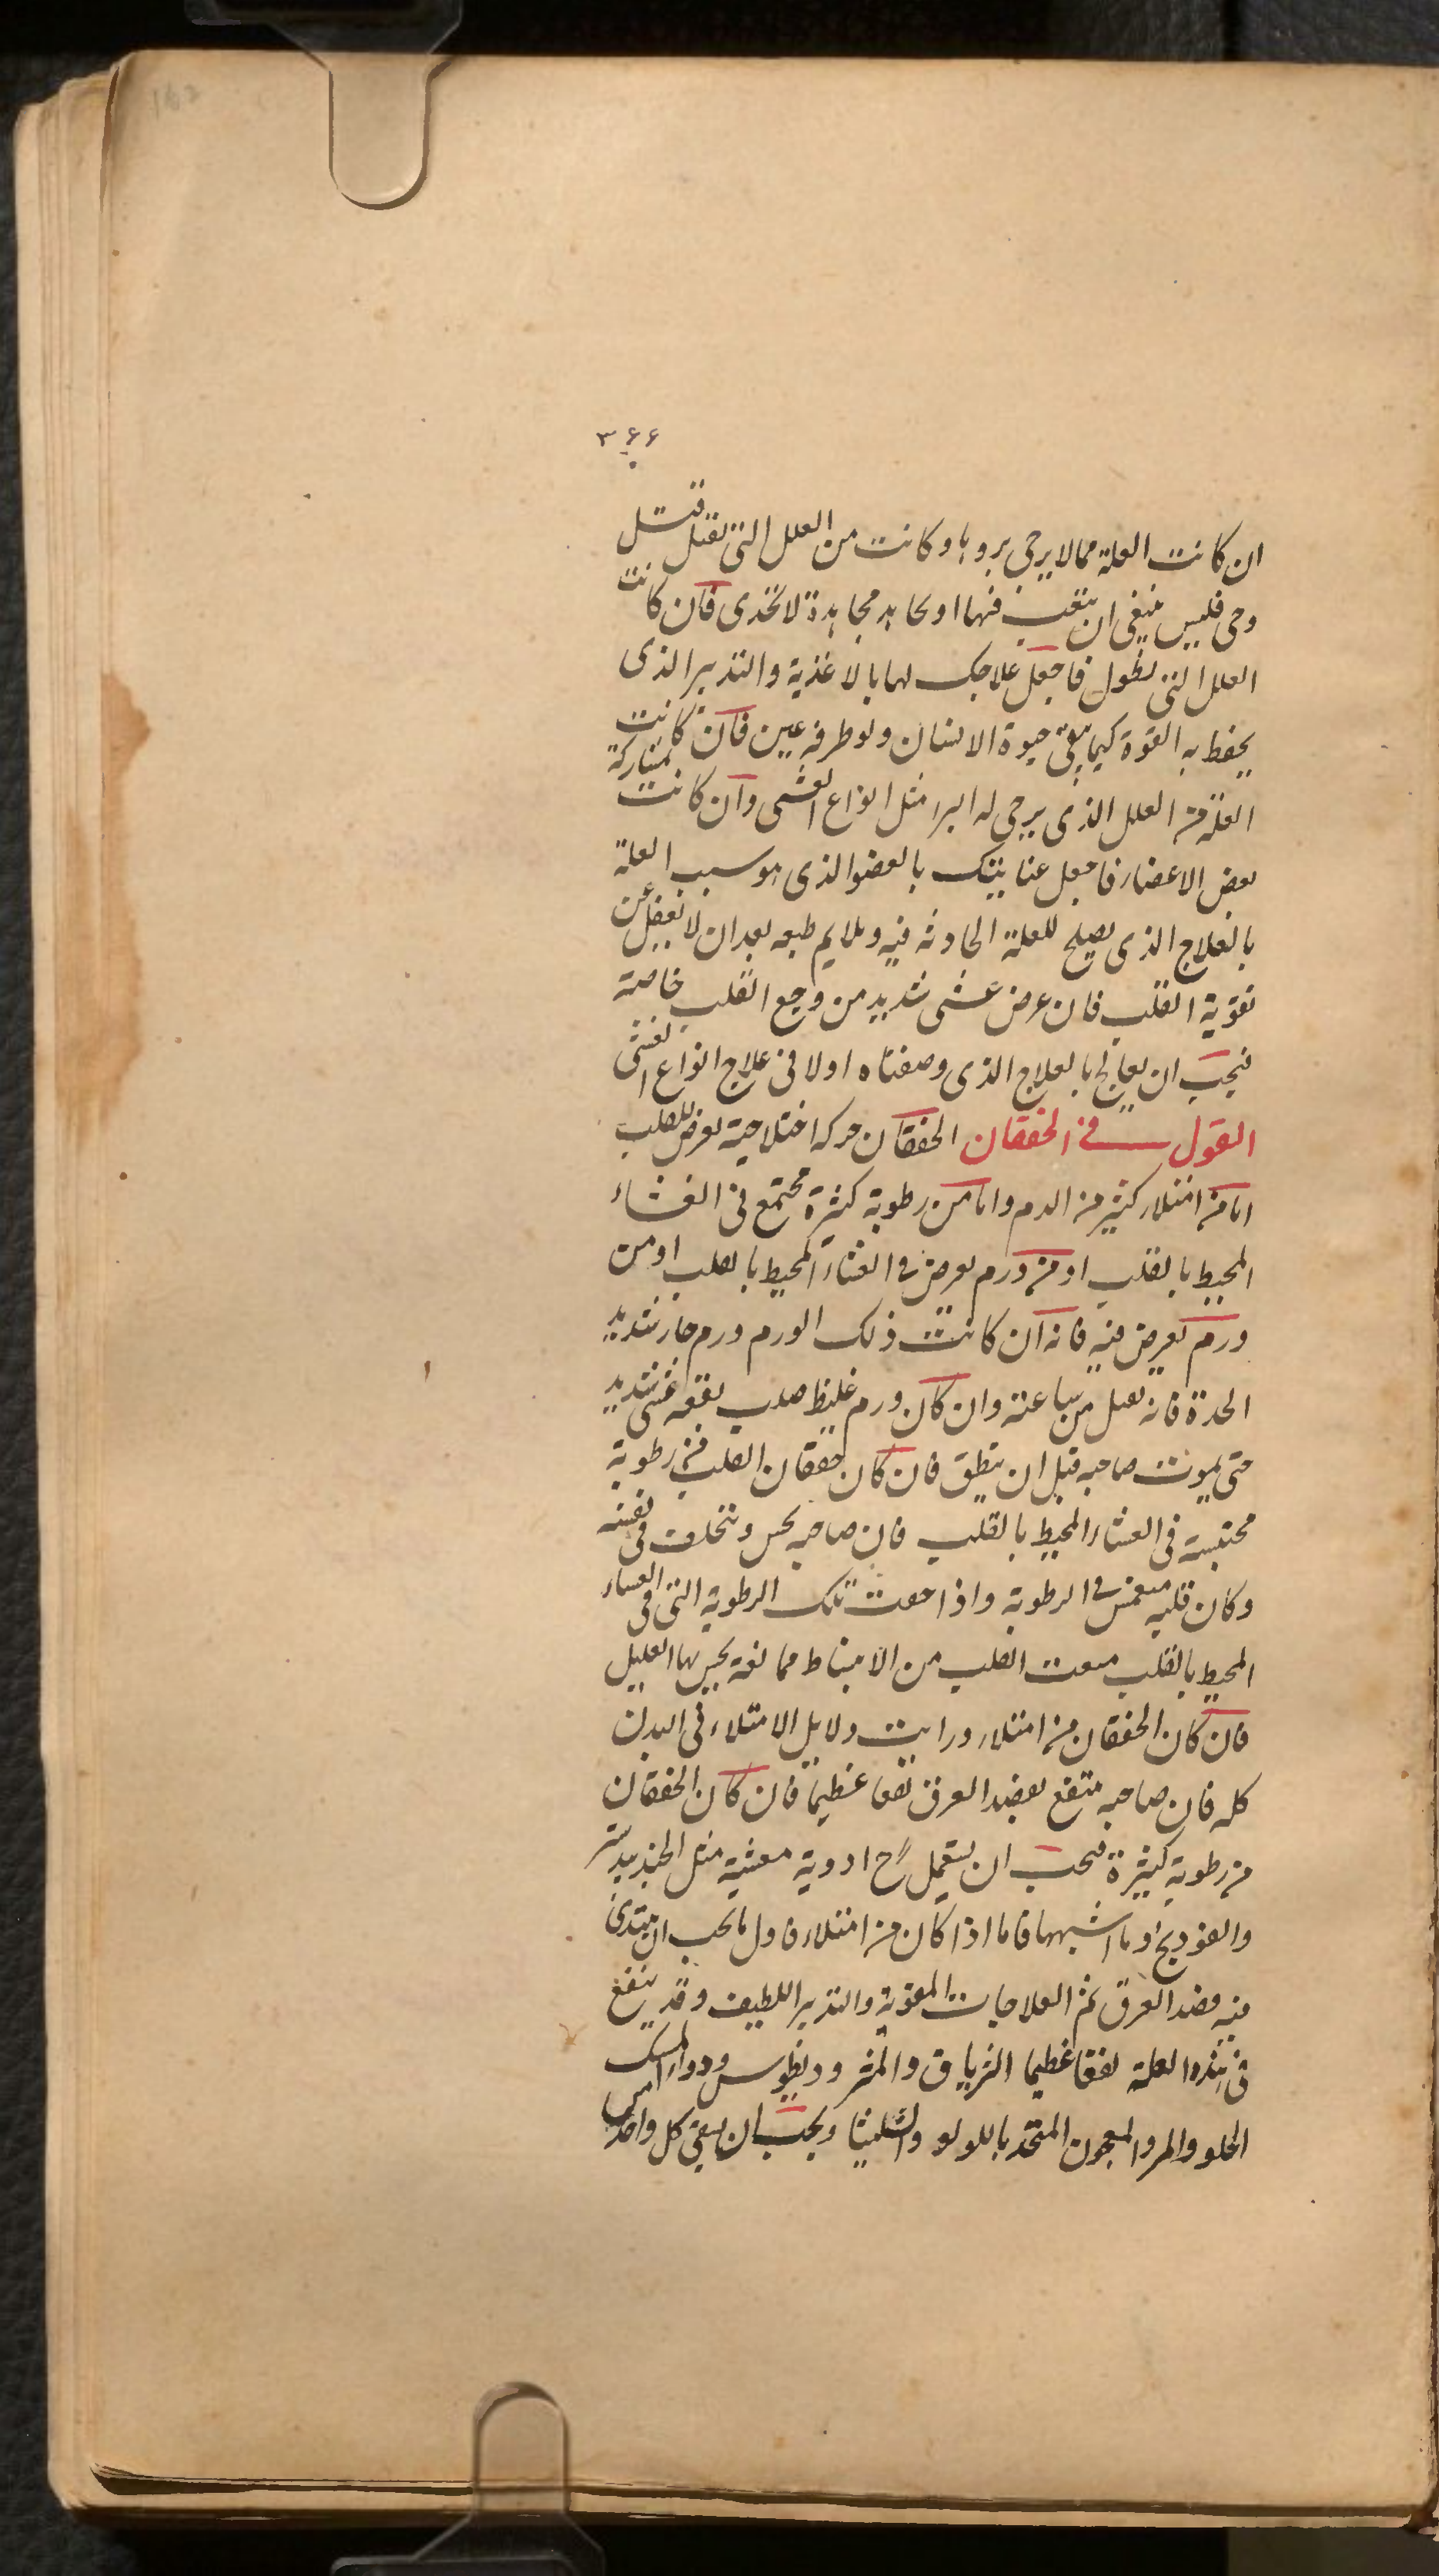 162
۳۶۶
ان كانت العلة مما لا يرجى بروها وكانت من العلل التى تقتل قتل
وحى فليس ينبغى ان يتعب فيها او يجاهد مجاهدة لا تجدى فان كانت
العلل التى تطول فاجعل علاجك لها بالاغذية والتدبير الذى
يحفظ به القوة كيما يبقى حيوة الانسان ولو طرفه عين فان كانت
العلة من العلل الذى يرجى له البرا مثل انواع الغشى وان كانت بمشاركة
بعض الاعضاء فاجعل عنايتك بالعضو الذى هو سبب العلة
بالعلاج الذى يصلح للعلة الحادثه فيه ويلايم طبعه بعد ان لا تغفل عن
تقوية القلب فان عرض غشى شديد من وجع القلب خاصة
فيجب ان يعالج بالعلاج الذى وصفناه اولا فى علاج انواع الغشى
القول فى الخفقان الخفقان حركه اختلاجية تعرض للقلب
اما من امتلاء كثير من الدم واما من رطوبة كثيرة تجتمع فى الغشاء
المحيط بالقلب او من ورم يعرض فى الغشاء المحيط بالقلب او من
ورم يعرض فيه فانه ان كانت ذلك الورم ورم حار شديد
الحدة فانه يقتل من ساعته وان كان ورم غليظ صلب يتبعه غشى شديد
حتى يموت صاحبه قبل ان ينطق فان كان خفقان القلب من رطوبة
محتبسة فى الغشاء المحيط بالقلب فان صاحبه يحس ويتخلف فى نفسه
وكان قلبه منغمس فى الرطوبة واذا جمعت تلك الرطوبة التى فى الغشاء
المحيط بالقلب منعت القلب من الانبساط ممانعة يحس بها العليل
فان كان الخفقان من امتلاء ورايت دلايل الامتلاء فى البدن
كله فان صاحبه ينتفع بفصد العرق نفعا عظيما فان كان الخفقان
من رطوبة كثيرة فيجب ان يستعمل ح ادوية مغشية مثل الجندبيدستر
والفودنج او ما اشبهها فاما اذا كان من امتلاء فاول ما يجب ان يبتدى
فيه فصد العرق ثم العلاجات المقوية والتدبير اللطيف وقد ينفع
فى هذه العلة نفعا عظيما الترياق والمثروديطوس ودواء المسك
الحلو والمر والمعجون المتخذ باللولو والشليثا ويجب ان يسقى كل واحد من